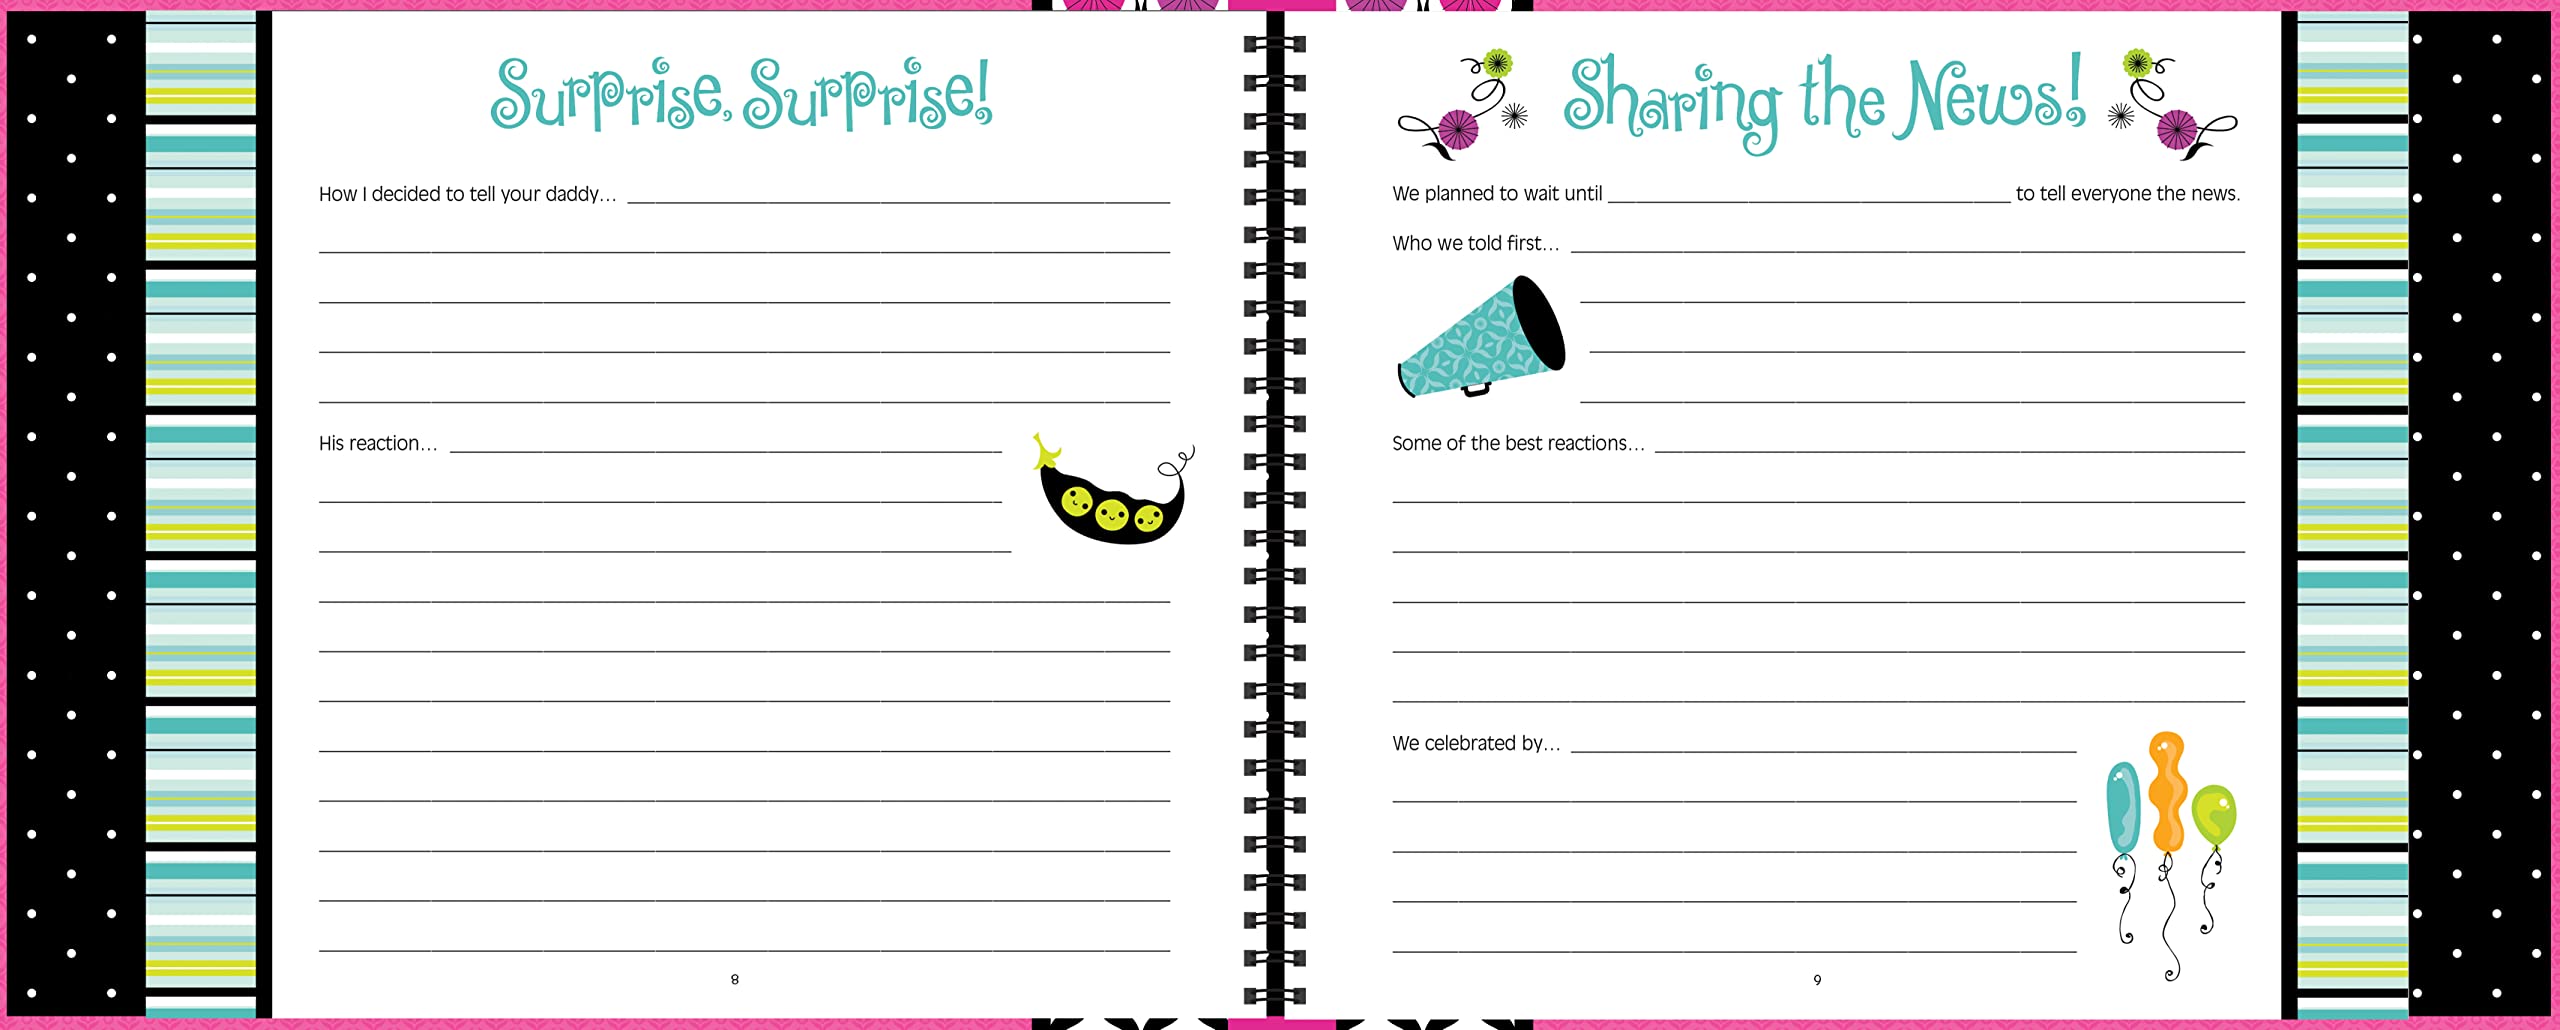 Surprise, Surprise!
How I decided to tell your daddy...
His reaction...
8
Sharing the News!
We planned to wait until ____ to tell everyone the news.
Who we told first...
Some of the best reactions...
We celebrated by...
9